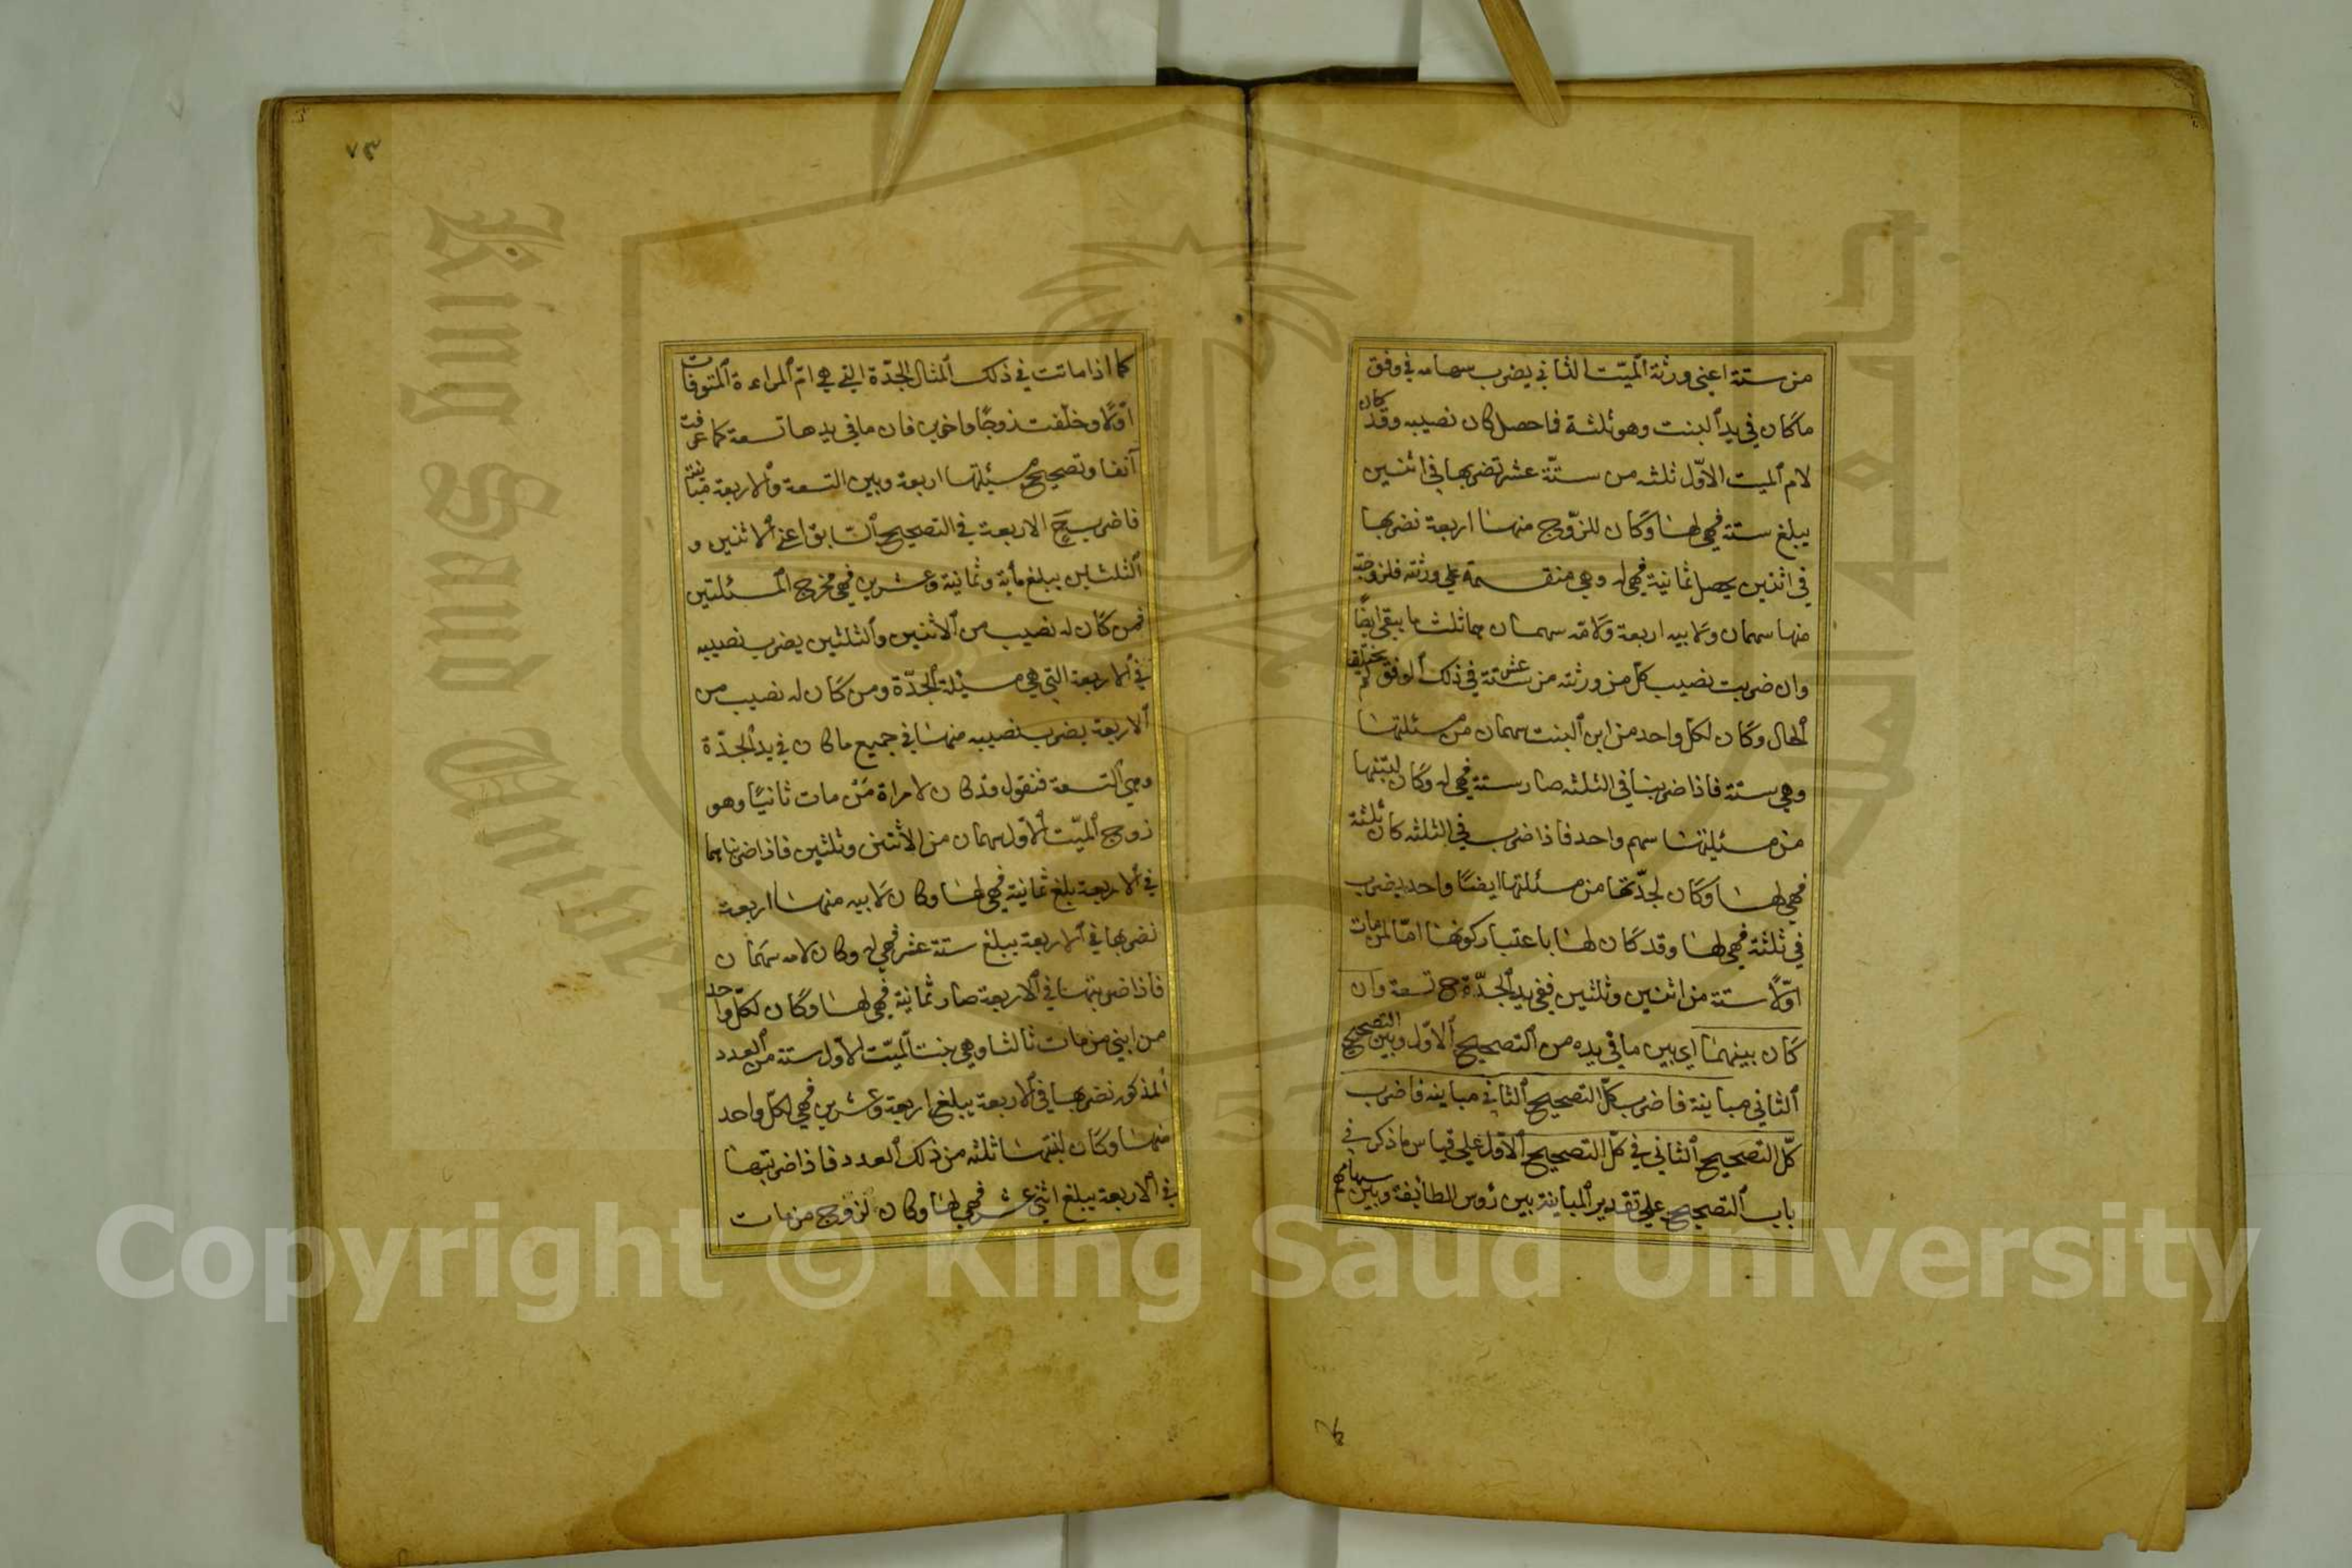 من ستة اعنى ورثة الميّت الثاني يضرب سهامه في وفق
ما كان في يد البنت وهو ثلثة فما حصل كان نصيبه وقد كان
لام الميت الاوّل ثلثه من ستّة عشر تضربها في اثنين
يبلغ ستة فهي لها وكان للزّوج منها اربعة نضربها
في اثنين يحصل ثمانية فهي له وهي منقسمة علي ورثته فلزوجته
منها سهمان ولابيه اربعة ولامّه سهمان هما ثلث ما يبقى ايضًا
وان ضربت نصيب كل من ورثته من ستة عشر في ذلك الوفق لم يختلف
الحال وكان لكل واحد من ابن البنت سهمان من مسئلتها
وهي ستة فاذا ضربنا في الثلثه صار ستة فهي له وكان لبنتها
من مسئلتها سهم واحد فاذا ضرب في الثلثه كان ثلثة
فهي لها وكان لجدّتها من مسئلتها ايضًا واحد يضرب
في ثلثة فهي لها وقد كان لها باعتبار كونها امّا لمن مات
اوّلًا ستة من اثنين وثلثين ففي يد الجدّة ح تسعة وان
كان بينهما اي بين ما في يده من التصحيح الاوّل وبين التصحيح
الثاني مباينة فاضرب كلّ التصحيح الثاني مباينه فاضرب
كلّ التصحيح الثاني في كلّ التصحيح الاوّل علي قياس ما ذكر في
باب التصحيح علي تقدير المباينة بين رؤس الطائفة وبين سهامهم
٧٣
كما اذا ماتت في ذلك المثال الجدّة التي هي امّ المراءة المتوفات
اوّلا وخلّفت زوجًا واخوين فان ما في يدها تسعة كما عرفت
آنفا وتصحيح مسئلتها اربعة وبين التسعة والاربعة مباينة
فاضرب ح الاربعة في التصحيح السّابق اعني الاثنين و
الثلثين يبلغ مأية وثمانية وعشرين فهي مخرج المسئلتين
فمن كان له نصيب من الاثنين والثلثين يضرب نصيبه
في الاربعة التي هي مسئلة الجدّة ومن كان له نصيب من
الاربعة يضرب نصيبه منها في جميع ما كان في يد الجدّة
وهي التسعة فنقول قد كان لامراة مَن مات ثانيًا وهو
زوج الميّت الاوّل سهمان من الاثنين وثلثين فاذا ضربناهما
في الاربعة بلغ ثمانية فهي لها وكان لابيه منها اربعة
نضربها في الاربعة يبلغ ستة عشر فهي له وكان لامه سهمان
فاذا ضربتها في الاربعة صار ثمانية فهي لها وكان لكلّ واحد
من ابني من مات ثالثا وهي بنت الميّت الاول ستة من العدد
المذكور نضربها في الاربعة يبلغ اربعة وعشرين فهي لكلّ واحد
منهما وكان لبنتها ثلثه من ذلك العدد فاذا ضربتها
في الاربعة يبلغ اثني عشر فهي لها وكان لزوج من مات
King Saud University
Copyright © King Saud University